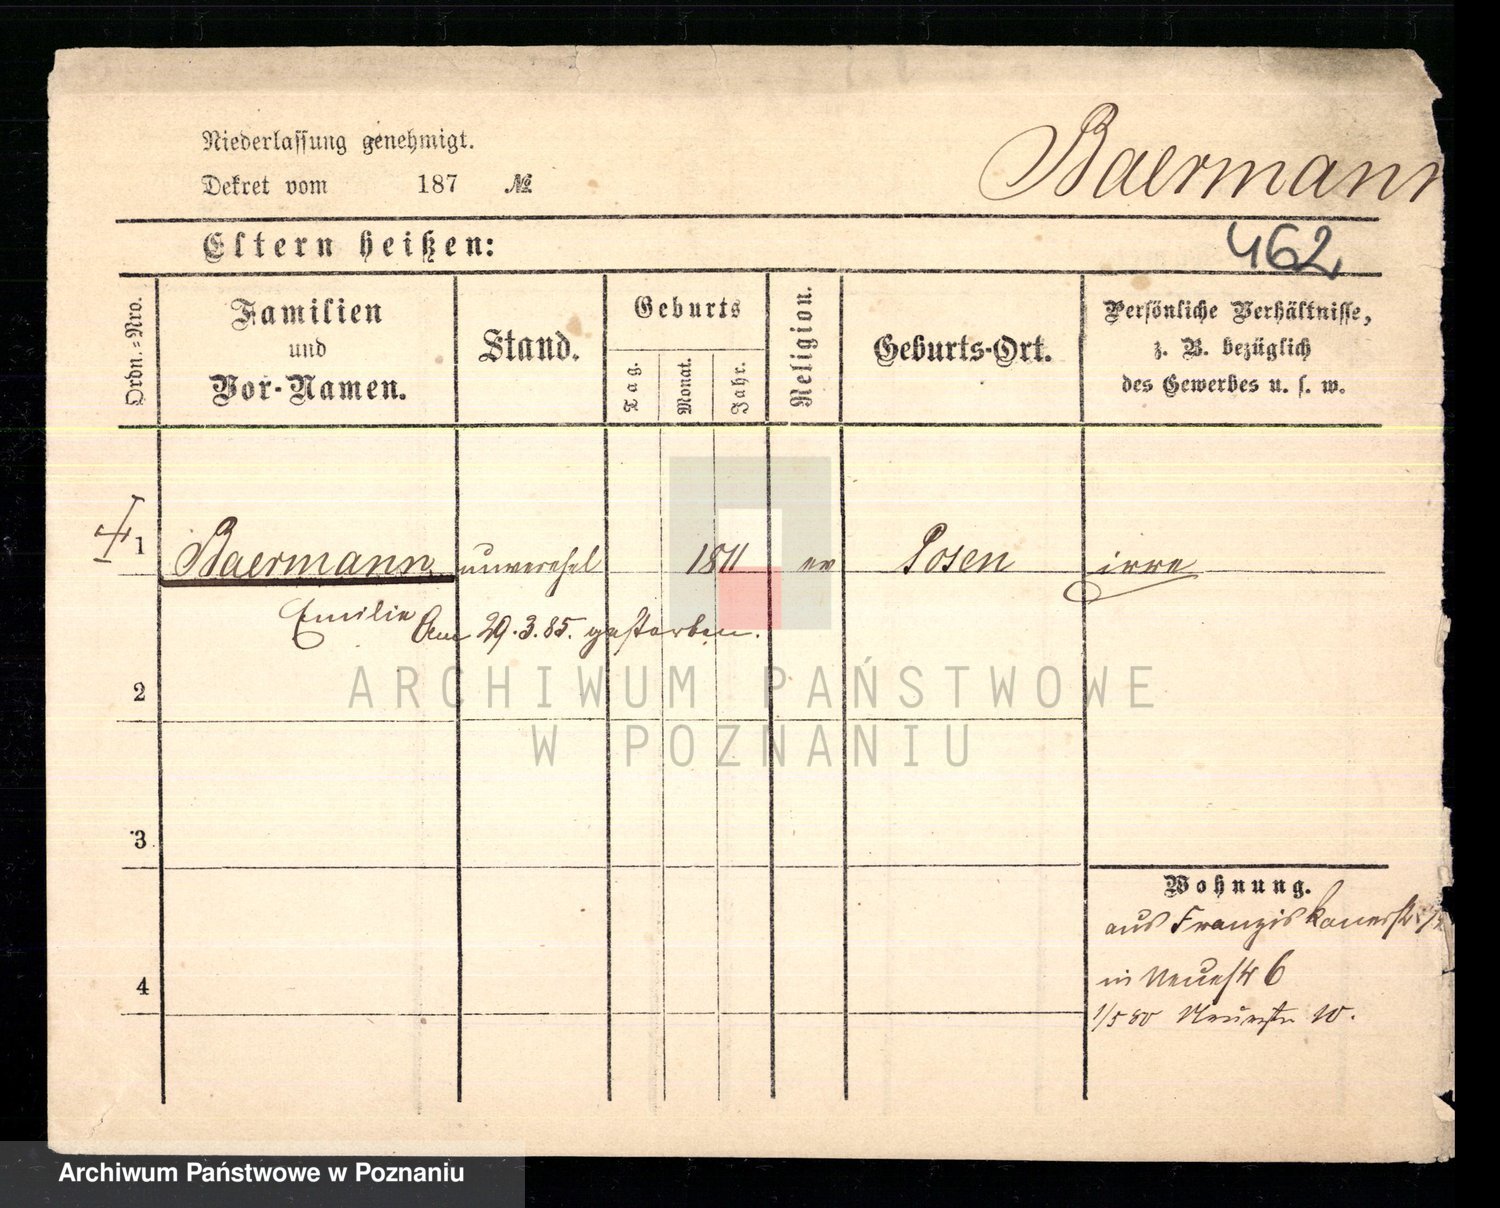 Niederlassung genehmigt.
Dekret vom 187 №
Baermann
Eltern heißen:
462
Ordn.=Nro.
Familien
und
Vor-Namen.
Stand.
Geburts
Tag.
Monat.
Jahr.
Religion.
Geburts-Ort.
Persönliche Verhältnisse,
z. B. bezüglich
des Gewerbes u. s. w.
1 Baermann unverehel 1811 ev Posen irre
Emilie Am 29.3.85. gestorben.
2
ARCHIWUM PAŃSTWOWE
W POZNANIU
3
Wohnung.
aus Franziskanerstr
in Neuestr 6
4
1/5 80 Neuestr 10.
Archiwum Państwowe w Poznaniu